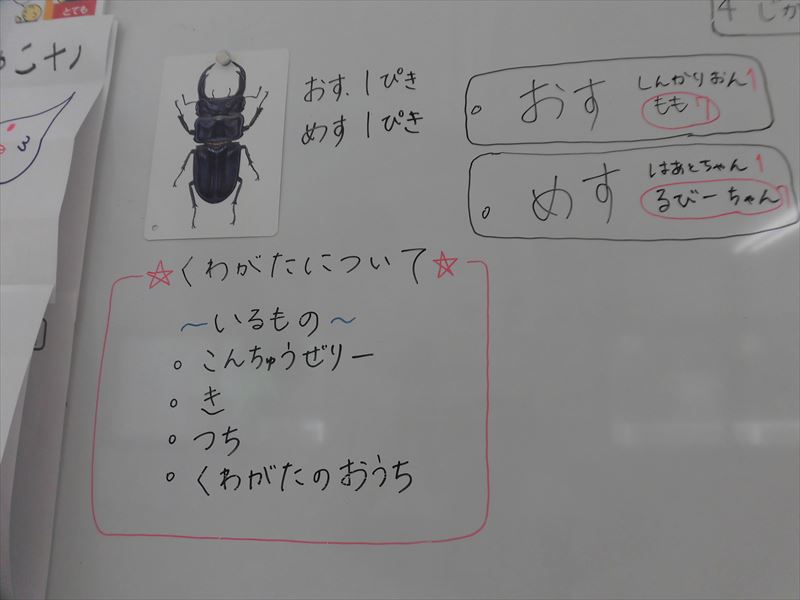 とても
おす.1ぴき
めす 1ぴき
おす
しんかりおん1
もも7
めす
はあとちゃん1
るびーちゃん7
☆くわがたについて☆
～いるもの～
○ こんちゅうぜりー
○ き
○ つち
○ くわがたのおうち